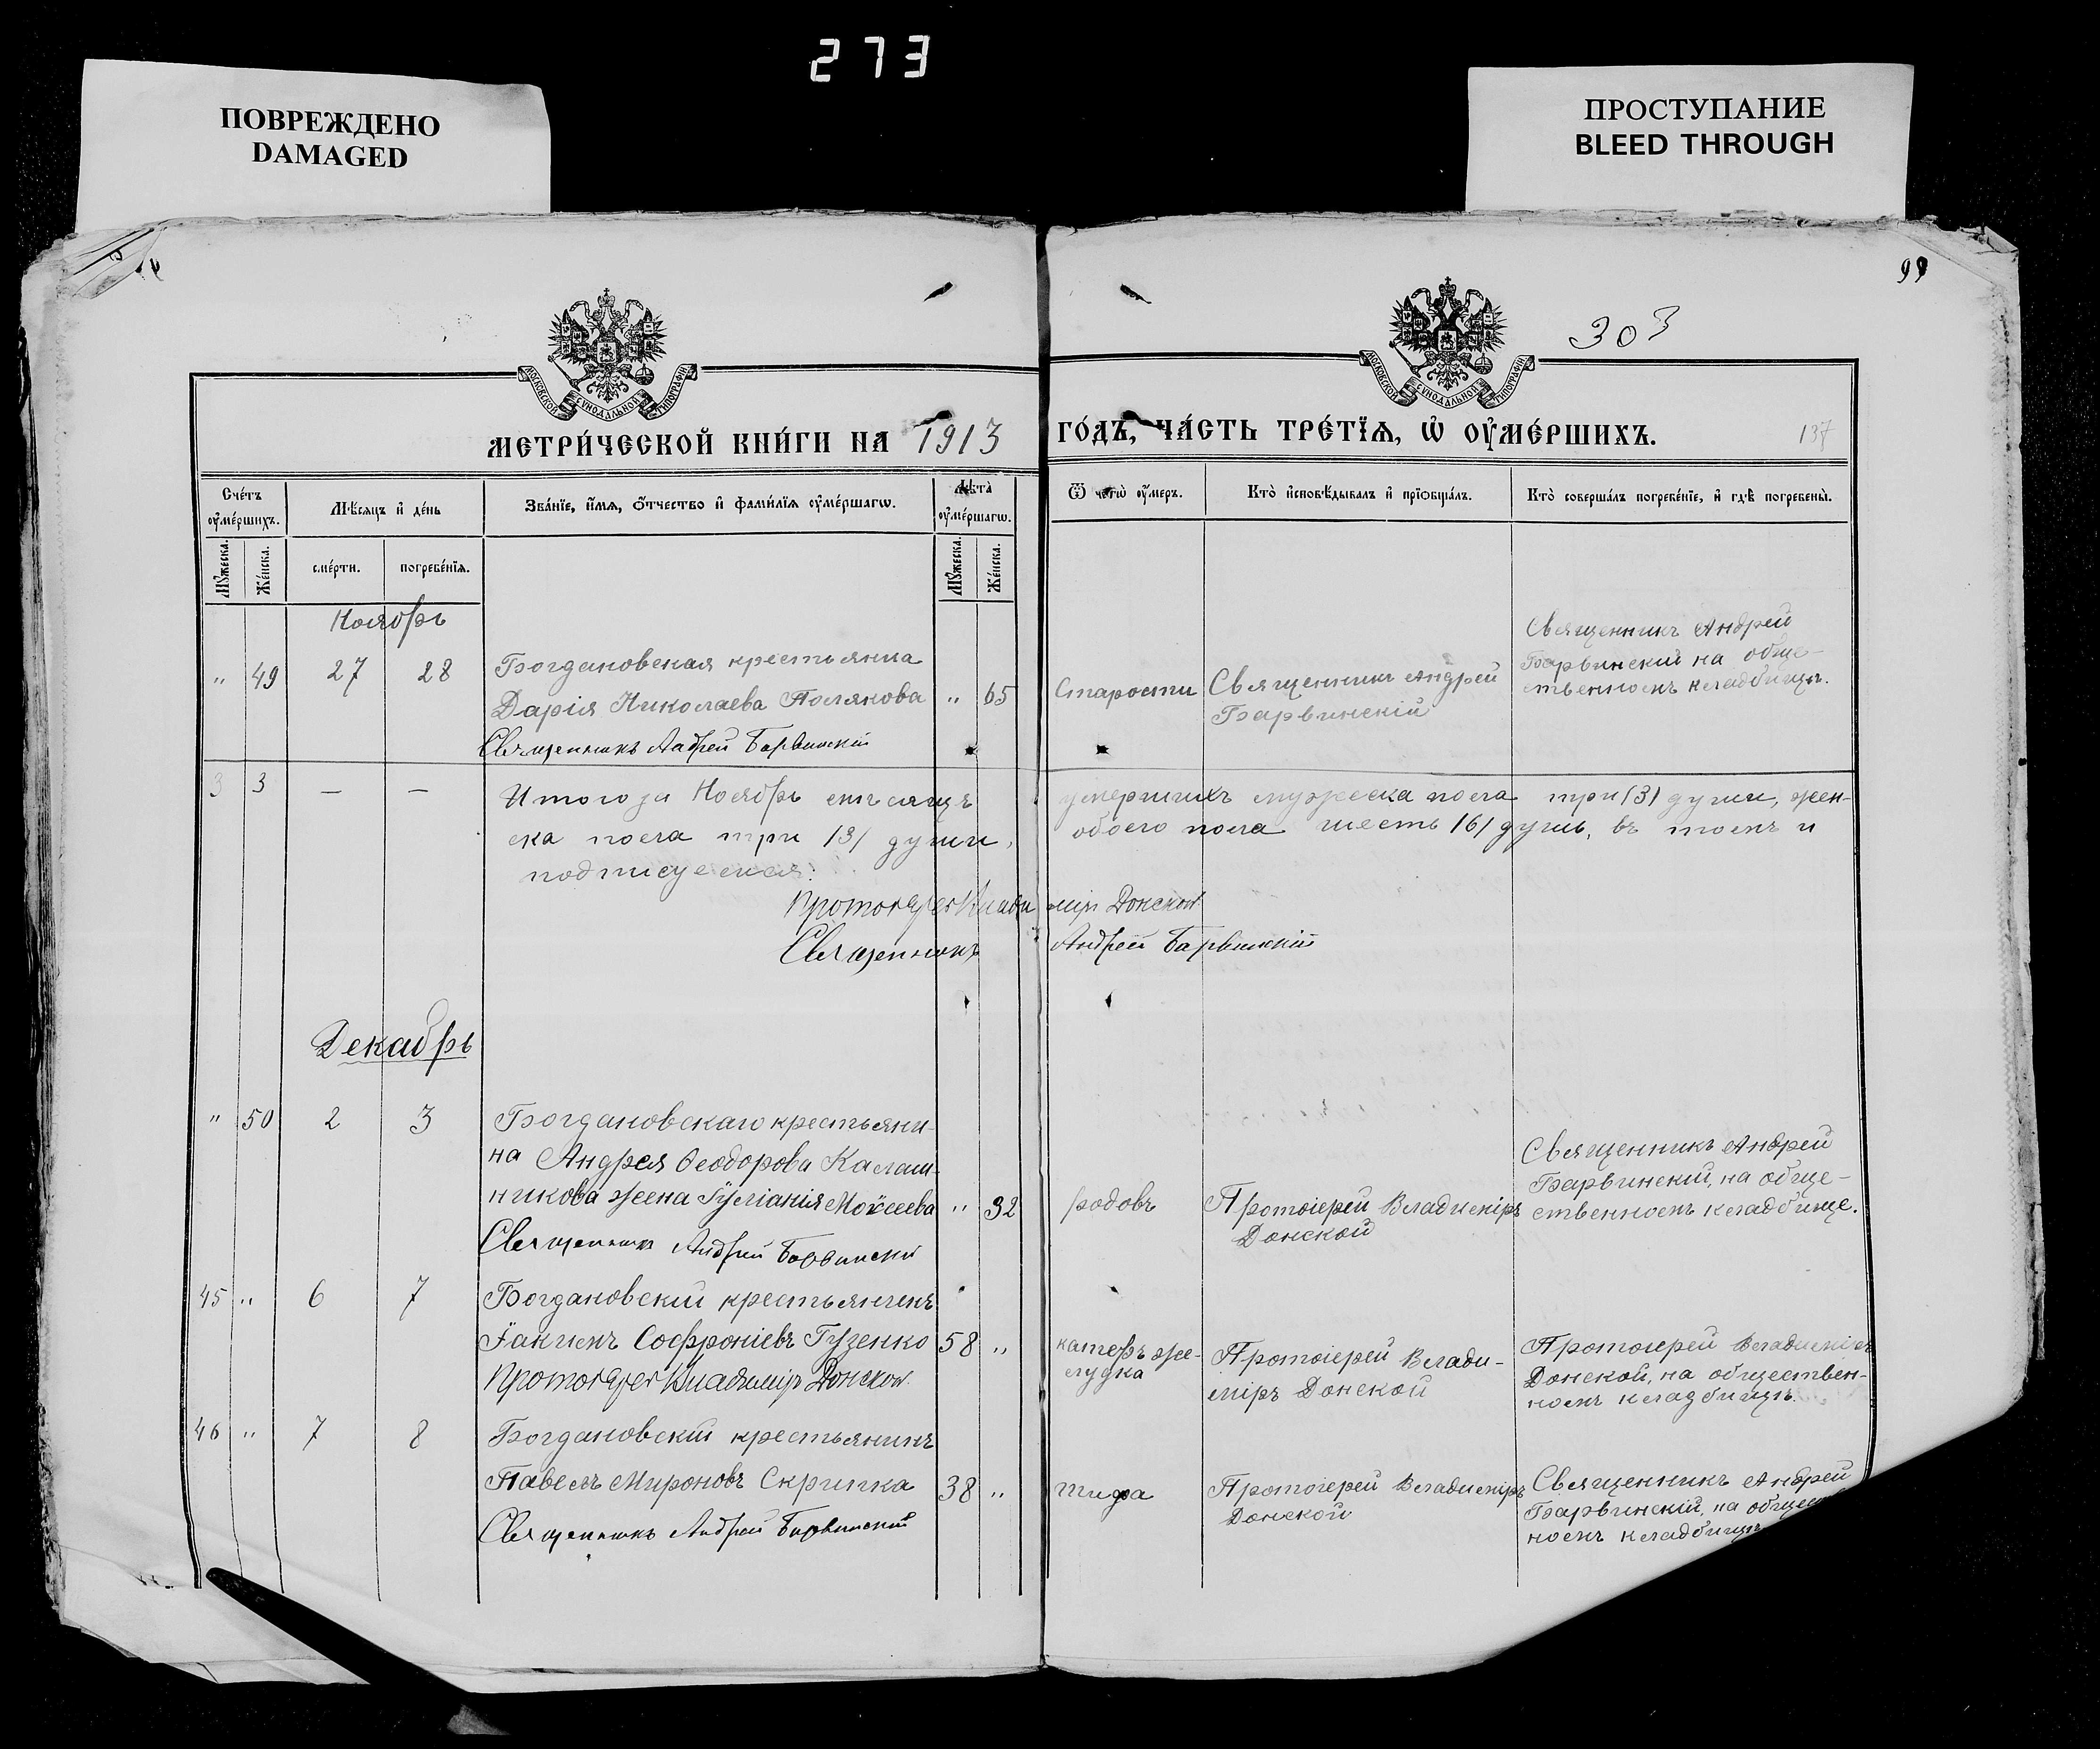 273
ПОВРЕЖДЕНО
DAMAGED
ПРОСТУПАНИЕ
BLEED THROUGH
99
303
МОСКОВСКОЙ СѴНОДАЛЬНОЙ ТИПОГРАФІИ
МОСКОВСКОЙ СѴНОДАЛЬНОЙ ТИПОГРАФІИ
МЕТРИ́ЧЕСКОЙ КНИ́ГИ НА 1913 ГО́ДЪ, ЧА́СТЬ ТРЕ́ТЇѦ, Ѡ҆ ОУ҆МЕ́РШИХЪ.
137
Сче́тъ оу҆ме́ршихъ.
Мѣ́сѧцъ и҆ де́нь
Зва́нїе, и҆́мѧ, ѻ҆́тчество и҆ фами́лїѧ оу҆ме́ршагѡ.
Лѣ́та̀ оу҆ме́ршагѡ.
Ѿ чегѡ̀ оу҆́меръ.
Кто̀ и҆сповѣ́дывалъ и҆ прїѡбща́лъ.
Кто̀ соверша́лъ погребе́нїе, и҆ гдѣ̀ погребены̀.
Мꙋ́жеска.
Же́нска.
сме́рти.
погребе́нїѧ.
Мꙋ́жеска.
Же́нска.
Ноябрь
" 49 27 28 Богдановская крестьянка
Дарія Николаева Полякова " 65
Священникъ Андрей Барвинскій
Старости
Священникъ Андрей
Барвинскій
Священникъ Андрей
Барвинскій на обще-
ственномъ кладбищѣ.
3 3 — — Итого за Ноябрь мѣсяцъ умершихъ мужеска пола три (3) души, жен-
ска пола три (3) души, обоего пола шесть (6) душъ, въ томъ и
подписуемся:
Протоіерей Владиміръ Донской
Священникъ Андрей Барвинскій
Декабрь
" 50 2 3 Богдановскаго крестьяни-
на Андрея Ѳеодорова Калаш-
никова жена Іуліанія Моѵсеева " 32
Священникъ Андрей Барвинскій
родовъ
Протоіерей Владиміръ
Донской
Священникъ Андрей
Барвинскій, на обще-
ственномъ кладбище.
45 " 6 7 Богдановскій крестьянинъ
Іакимъ Софроніевъ Гузенко 58 "
Протоіерей Владиміръ Донской
катеръ же-
лудка
Протоіерей Влади-
міръ Донской
Протоіерей Владиміръ
Донской, на обществен-
номъ кладбищѣ.
46 " 7 8 Богдановскій крестьянинъ
Павелъ Мироновъ Скрипка 38 "
Священникъ Андрей Барвинскій
тифа
Протоіерей Владиміръ
Донской
Священникъ Андрей
Барвинскій, на общест
номъ кладбищѣ